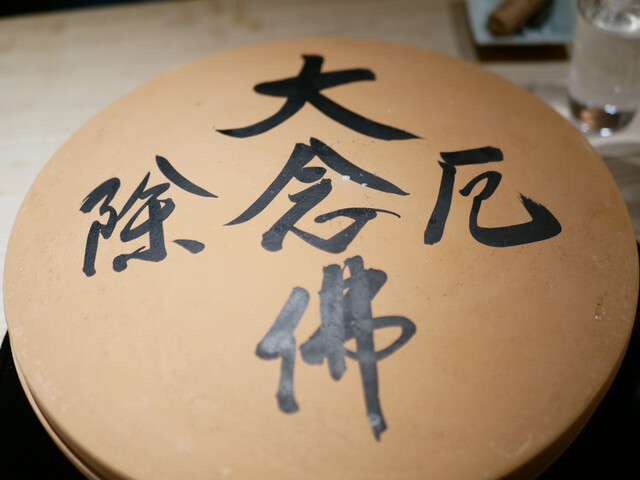 大念佛
厄除